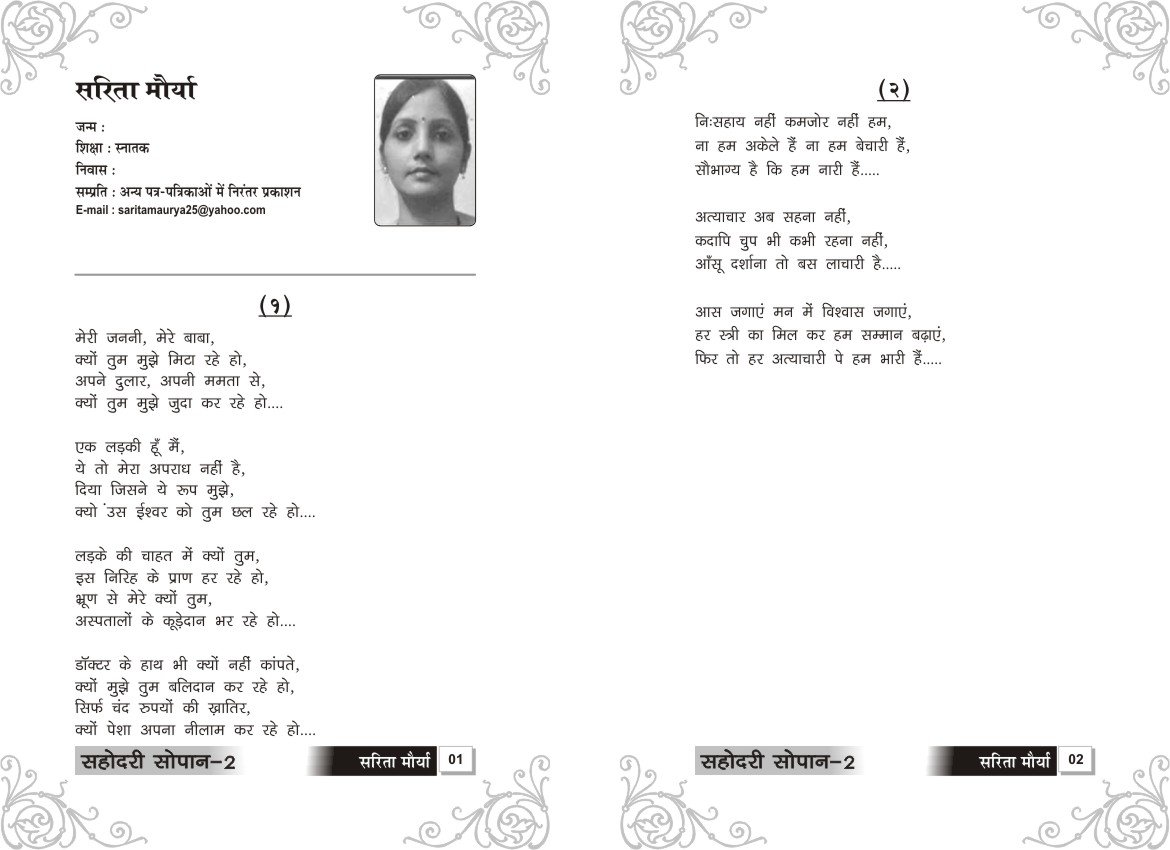 सरिता मौर्या
जन्म :
शिक्षा : स्नातक
निवास :
सम्प्रति : अन्य पत्र-पत्रिकाओं में निरंतर प्रकाशन
E-mail : saritamaurya25@yahoo.com
(१)
मेरी जननी, मेरे बाबा,
क्यों तुम मुझे मिटा रहे हो,
अपने दुलार, अपनी ममता से,
क्यों तुम मुझे जुदा कर रहे हो....
एक लड़की हूँ मैं,
ये तो मेरा अपराध नहीं है,
दिया जिसने ये रूप मुझे,
क्यो ंउस ईश्वर को तुम छल रहे हो....
लड़के की चाहत में क्यों तुम,
इस निरिह के प्राण हर रहे हो,
भ्रूण से मेरे क्यों तुम,
अस्पतालों के कूड़ेदान भर रहे हो....
डॉक्टर के हाथ भी क्यों नहीं कांपते,
क्यों मुझे तुम बलिदान कर रहे हो,
सिर्फ चंद रुपयों की ख़ातिर,
क्यों पेशा अपना नीलाम कर रहे हो....
सहोदरी सोपान-2
सरिता मौर्या 01
(२)
निःसहाय नहीं कमजोर नहीं हम,
ना हम अकेले हैं ना हम बेचारी हैं,
सौभाग्य है कि हम नारी हैं.....
अत्याचार अब सहना नहीं,
कदापि चुप भी कभी रहना नहीं,
आँसू दर्शाना तो बस लाचारी है.....
आस जगाएं मन में विश्वास जगाएं,
हर स्त्री का मिल कर हम सम्मान बढ़ाएं,
फिर तो हर अत्याचारी पे हम भारी हैं.....
सहोदरी सोपान-2
सरिता मौर्या 02